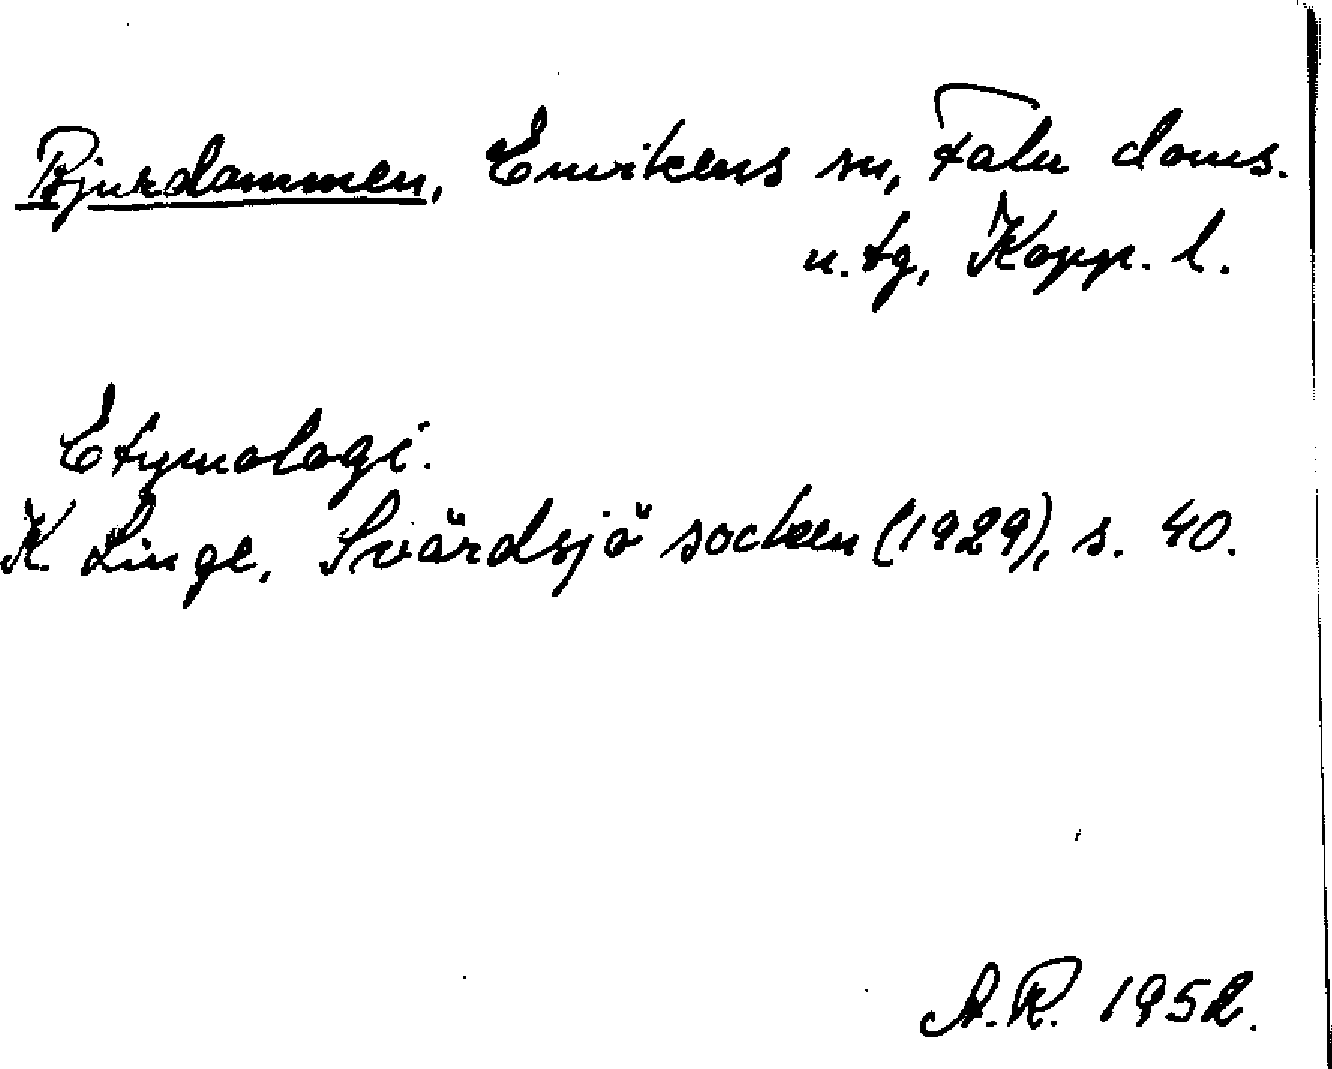 Bjurdammen, Envikens sn, Falu doms.
n. tg, Kopp. l.
Etymologi.
K Linge, Svärdsjö socken (1929), s. 40.
A.R. 1952.